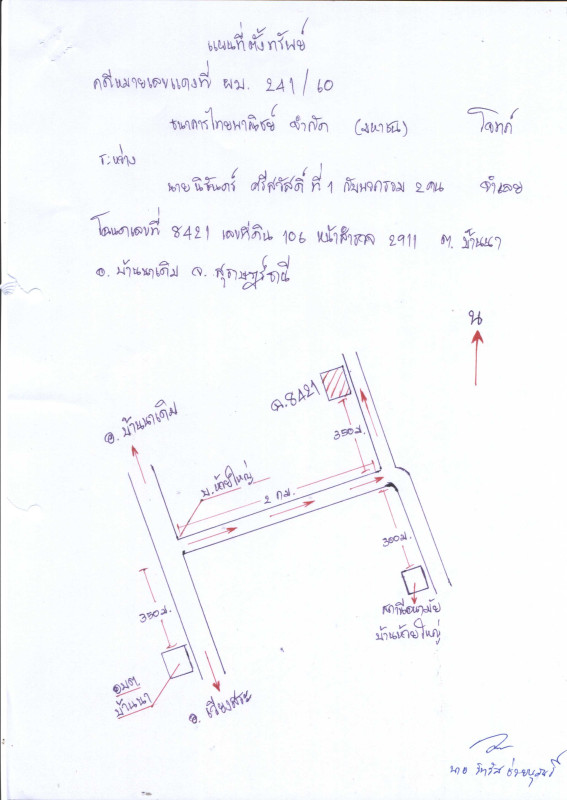 แผนที่ตั้งทรัพย์
คดีหมายเลขแดงที่ ผบ. 241/60
ธนาคารไทยพาณิชย์ จำกัด (มหาชน) โจทก์
ระหว่าง
นาย ศรีสวัสดิ์ ที่ 1 กับพวกรวม 2 คน จำเลย
โฉนดเลขที่ 8421 เลขที่ดิน 106 หน้าสำรวจ 2911 ต. บ้านนา
อ. บ้านนาเดิม จ. สุราษฎร์ธานี
น
ฉ.8421
อ. บ้านนาเดิม
350 ม.
บ.ห้วยใหญ่
2 กม.
300 ม.
350 ม.
สถานีอนามัย
บ้านห้วยใหญ่
อบต.
บ้านนา
อ. เวียงสระ
นาย